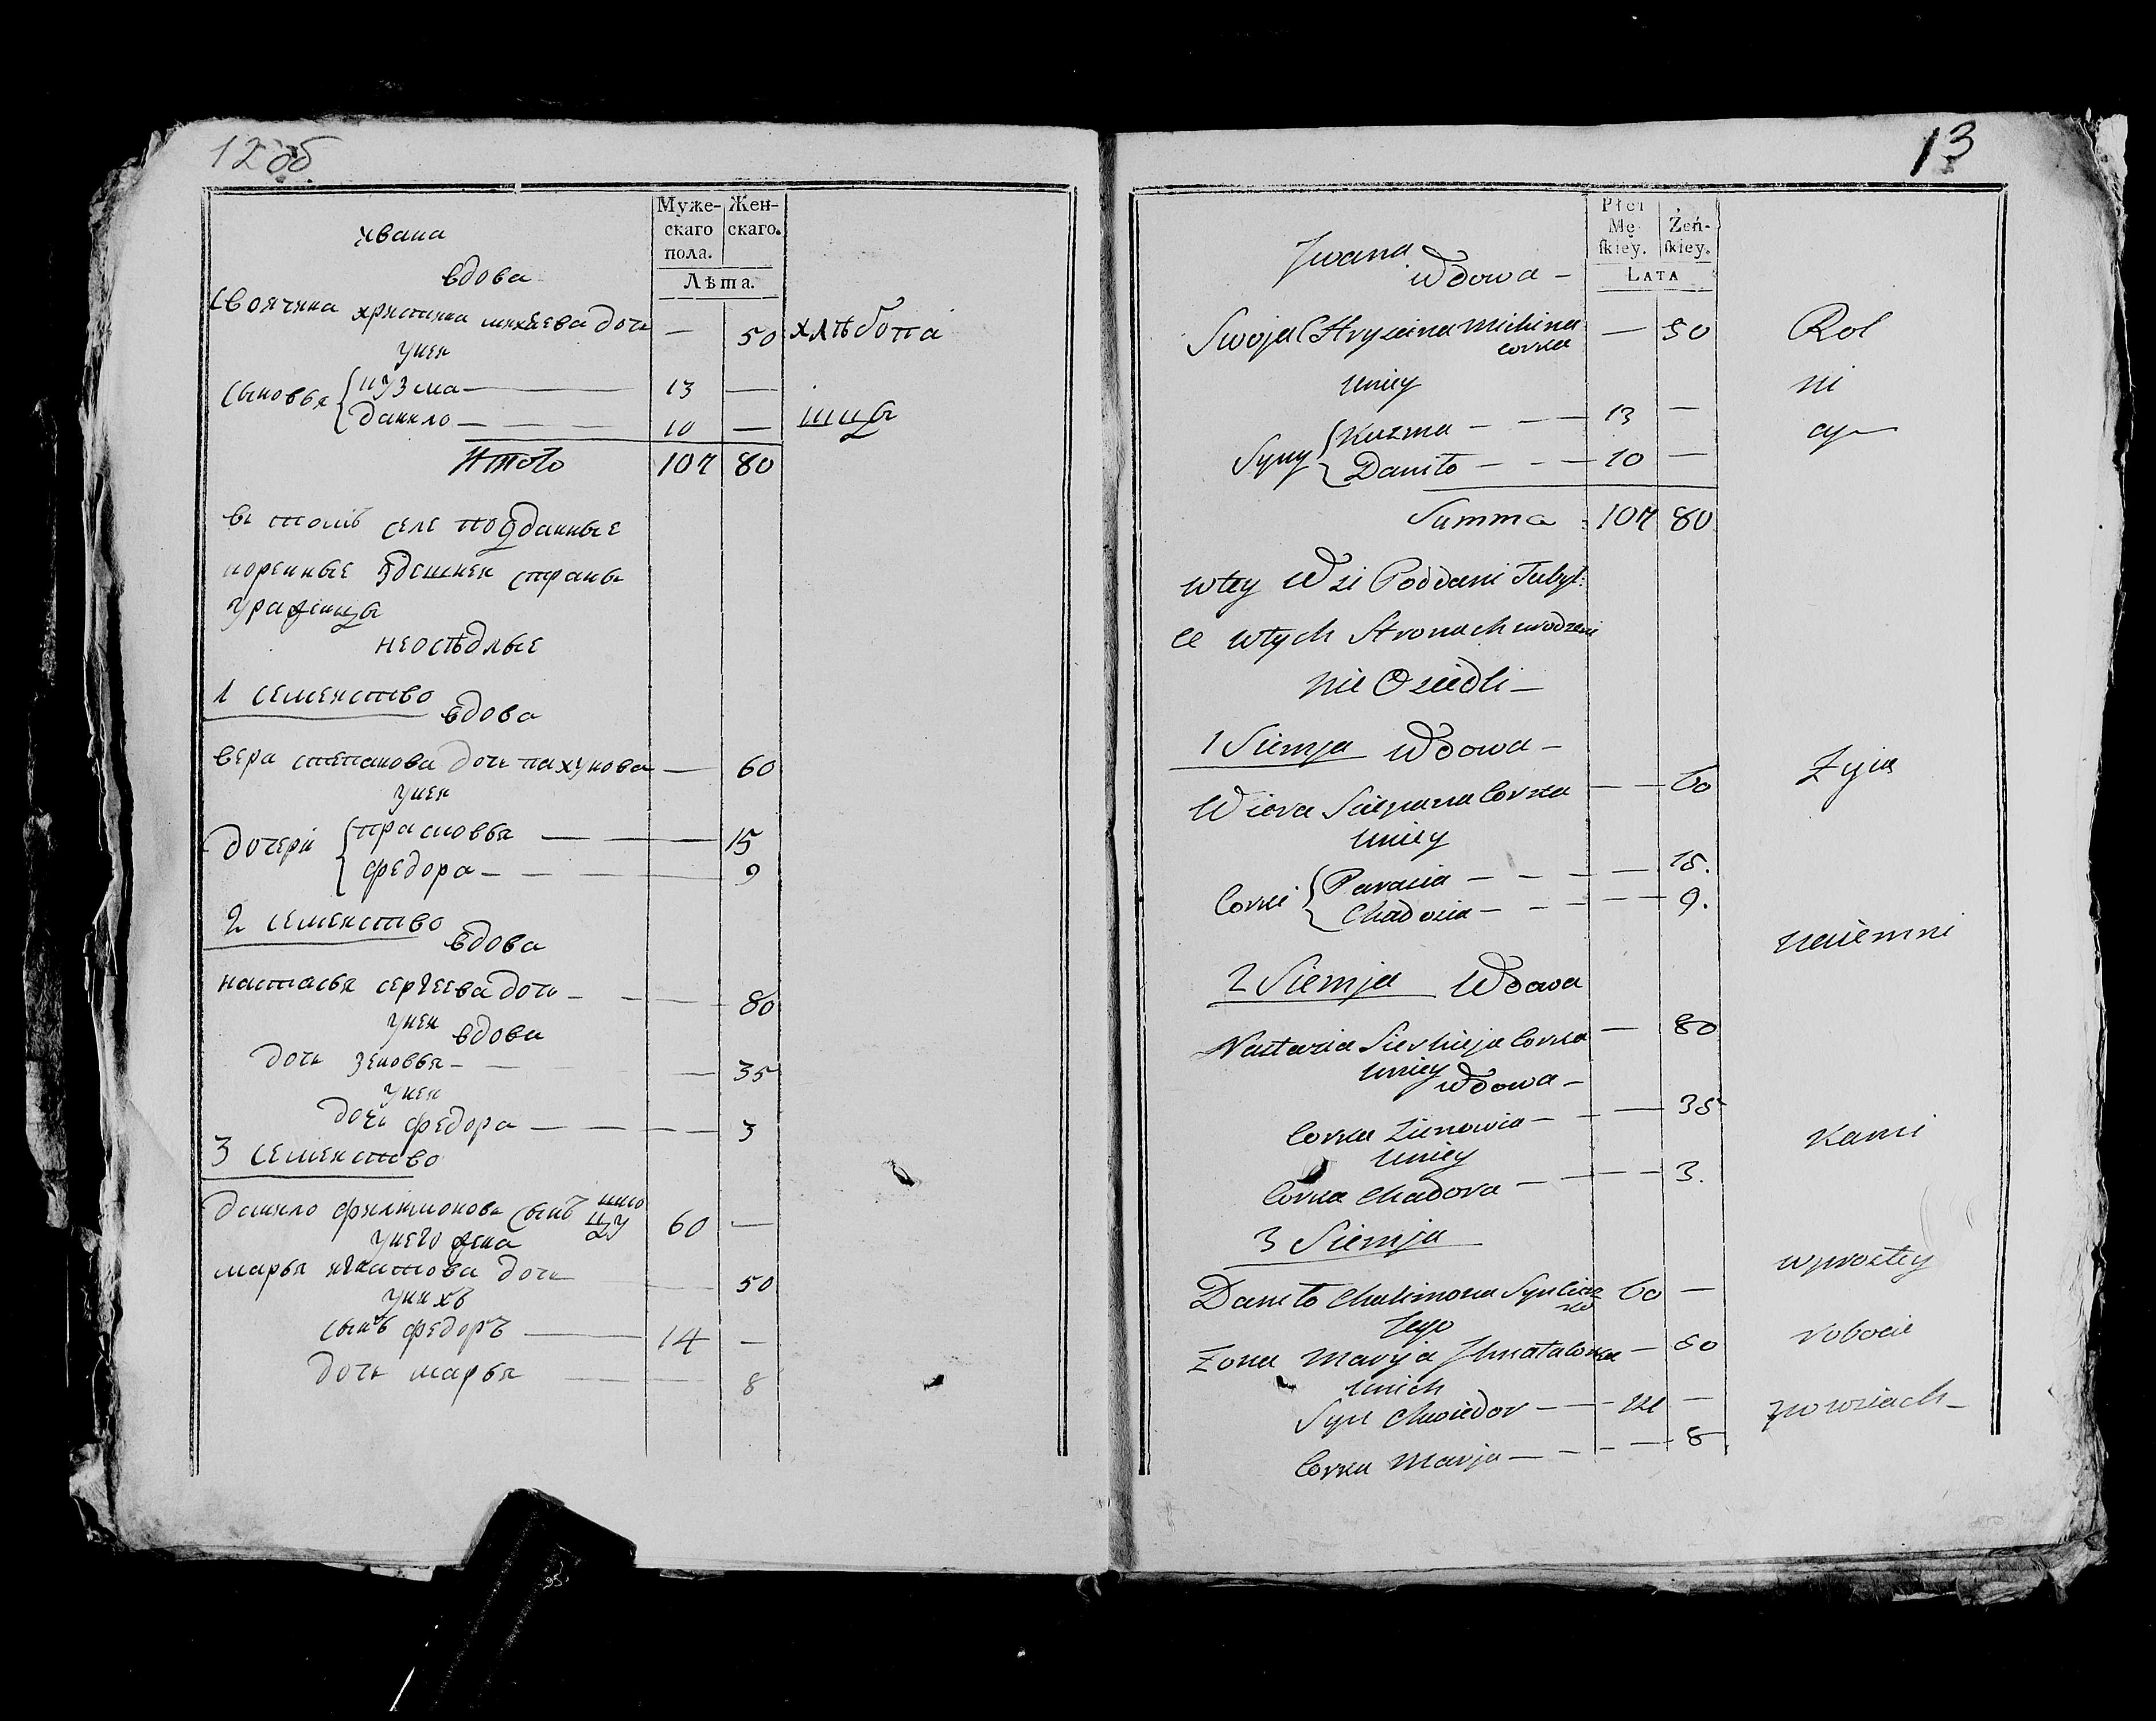 12 об.
Муже- Жен-
скаго скаго.
пола.
Лѣта.
Ивана
вдова
Своячина христина михѣева дочь — 50 хлѣбопа
унея
сыновья { кузма — 13 —
данило — 10 — шцы
Итого 107 80
въ томъ селе подданные
коренные здешней страны
уроженцы
неоседлые
1 семейство вдова
вера степанова дочь — 60
унея
дочери { прасковья — 15
федора — 9
2 семейство вдова
настасья сергеева дочь — 80
унея вдова
дочь зеновья — 35
унея
дочь федора — 3
3 семейство
данило филимоновъ сынъ 60 —
унего жена
марья игнатова дочь — 50
унихъ
сынъ федоръ — 14 —
дочь марья — 8
13
Płci
Mę- Żeń-
skiey. skiey.
LATA
Jwana
Wdowa —
Swoja Chrysćina Michina — 50 Rol
corka
uniey ni
Syny { Kuzma — 13 — cy
Daniło — 10 —
Summa 107 80
wtey Wsi Poddani Tubyl:
ce wtych Stronach urodzeni
nie Osiedli —
1 Siemja Wdowa —
Wiera Sciepana Corka — 60 Żyią
uniey
Corki { Parasia — 15.
Chadosia — 9.
naiemni
2 Siemja Wdowa
Nastazia Sierhieja Corka — 80
uniey
Wdowa —
Corka Zienowia — 35
uniey kami
Corka Chadora — 3.
3 Siemja
wprostey
Daniło Chulimona Syn 60 —
Jego robocie
Żona Maryja Jhnata Corka — 50
unich
Syn Chwiedor — 14 — powsiach —
Corka Marja — 8